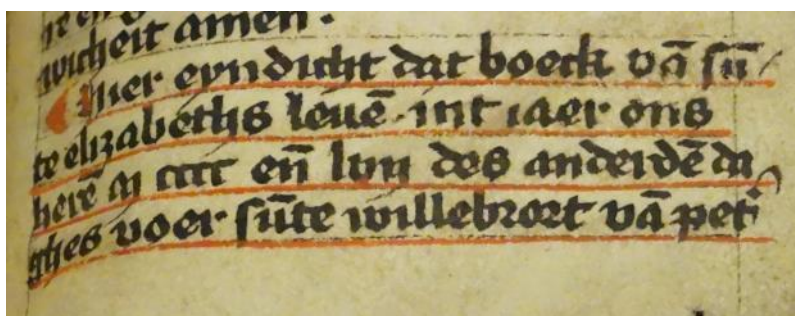 wicheit amen .
hier eyndicht dat boeck vā sū
te elizabeths leuē . int iaer ons
herē m cccc eñ lviij des anderdē da
ghes voer sūte willebrort vā pet